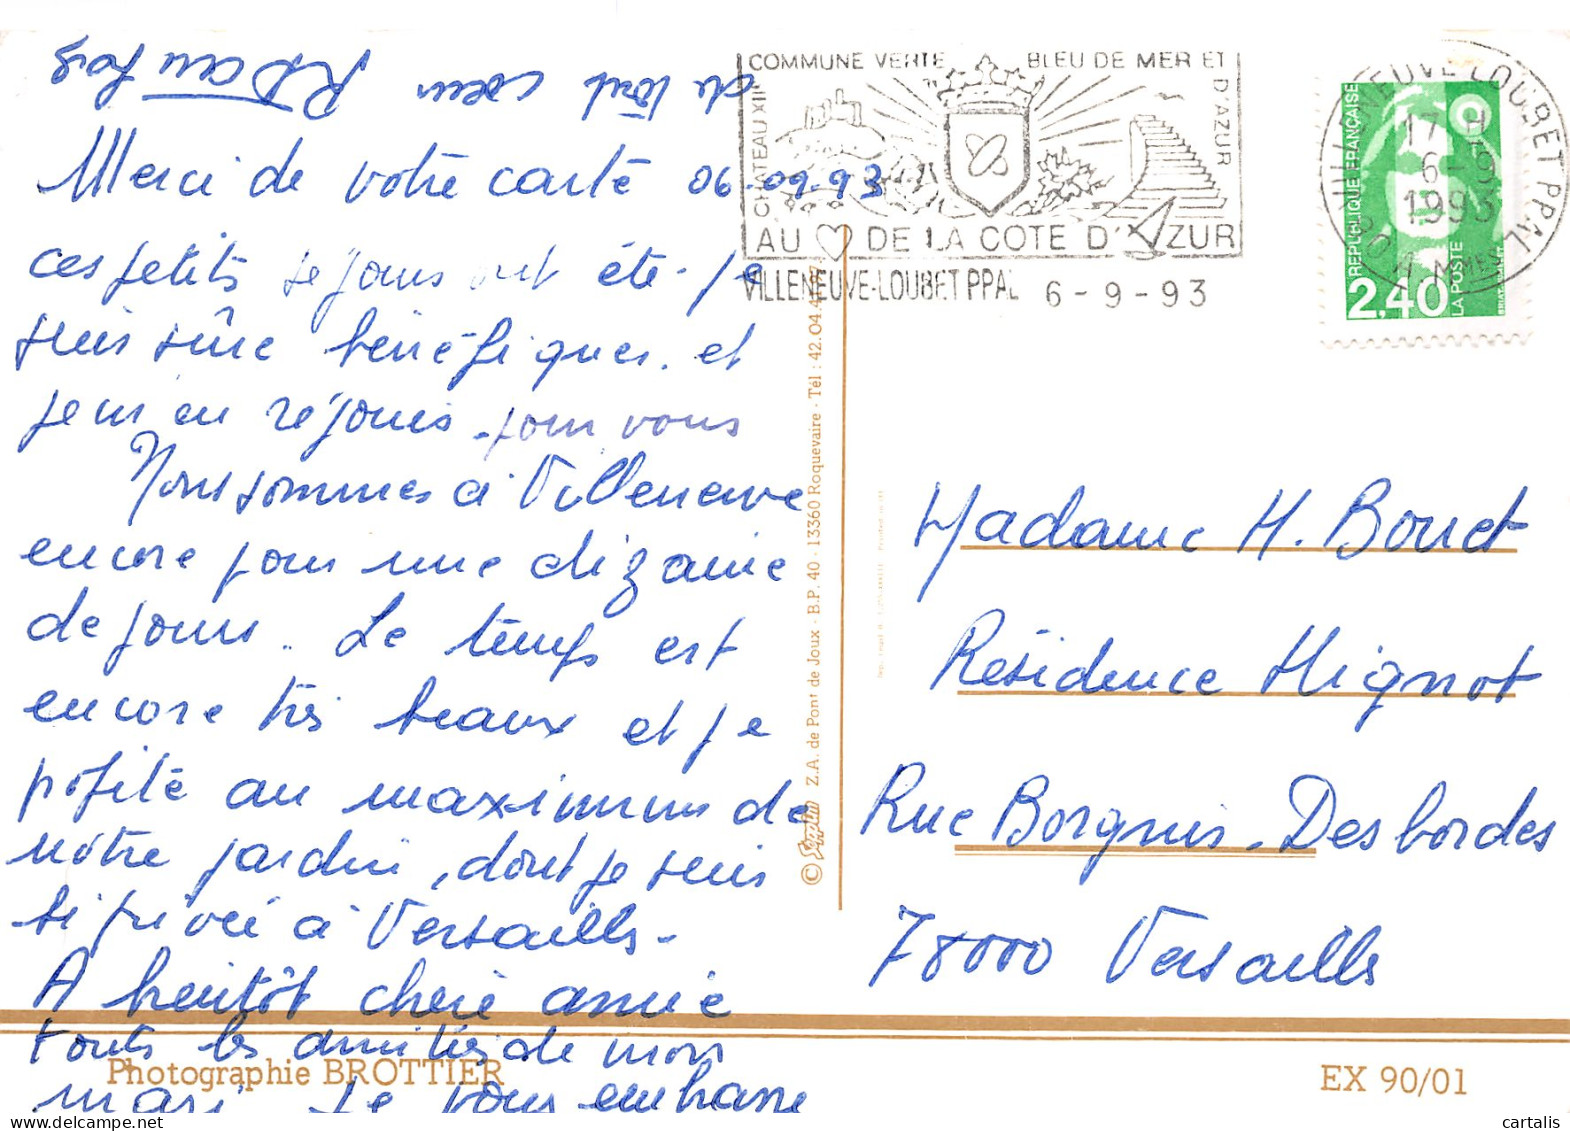 de tout cœur
Merci de votre carte 06.09.93
ces petits séjours ont été - je
suis sûre bénéfiques. et
je m'en réjouis - pour vous
Nous sommes à Villeneuve
encore pour une dizaine
de jours. Le temps est
encore très beaux et je
profite au maximum de
nôtre jardin, dont je suis
si privée à Versailles -
A bientôt chère amie
touts les amitiés de mon
mari. Je vous embrasse
COMMUNE VERTE BLEU DE MER ET
D'AZUR
CHATEAU XII
AU DE LA COTE D'AZUR
VILLENEUVE-LOUBET PPAL 6-9-93
VILLENEUVE-LOUBET PPAL
17 H
6-9
1993
Mmes
REPUBLIQUE FRANÇAISE
2,40
LA POSTE
Z.A. de Pont de Joux - B.P. 40 - 13360 Roquevaire - Tél : 42.04.
©
Madame H. Bouet
Résidence Mignot
Rue Borgnis-Desbordes
78000 Versailles
Photographie BROTTIER
EX 90/01
cartalis.com